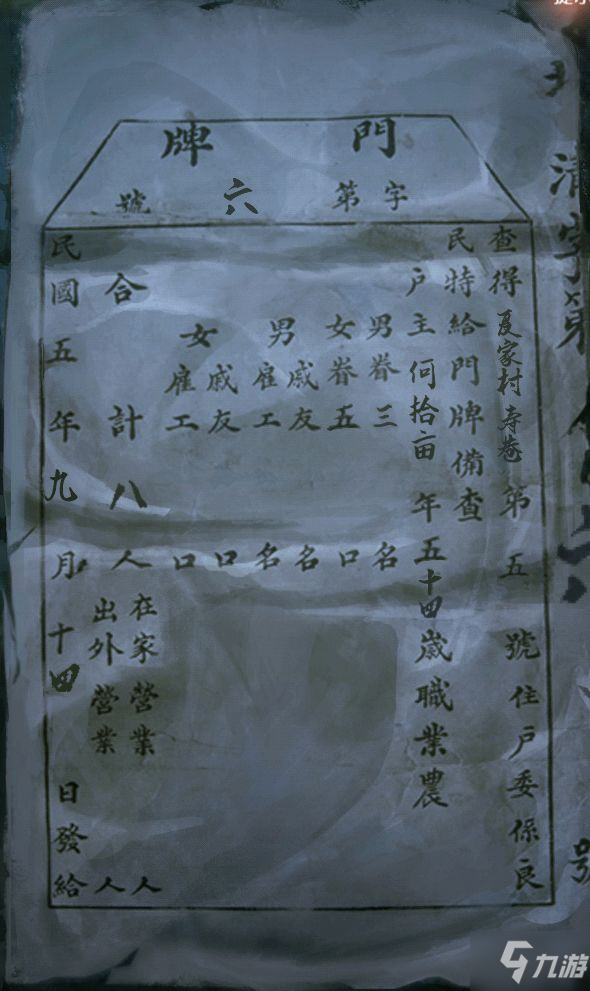 門牌
字第六號
查得夏家村寿巷第五號住戶委係良
民特給門牌備查
户主何拾亩年五十四歲職業農
男眷三名
女眷五口
男戚友名
男雇工名
女戚友口
女雇工口
合計八人
在家營業人
出外營業人
民國五年九月十四日發給
號
九游